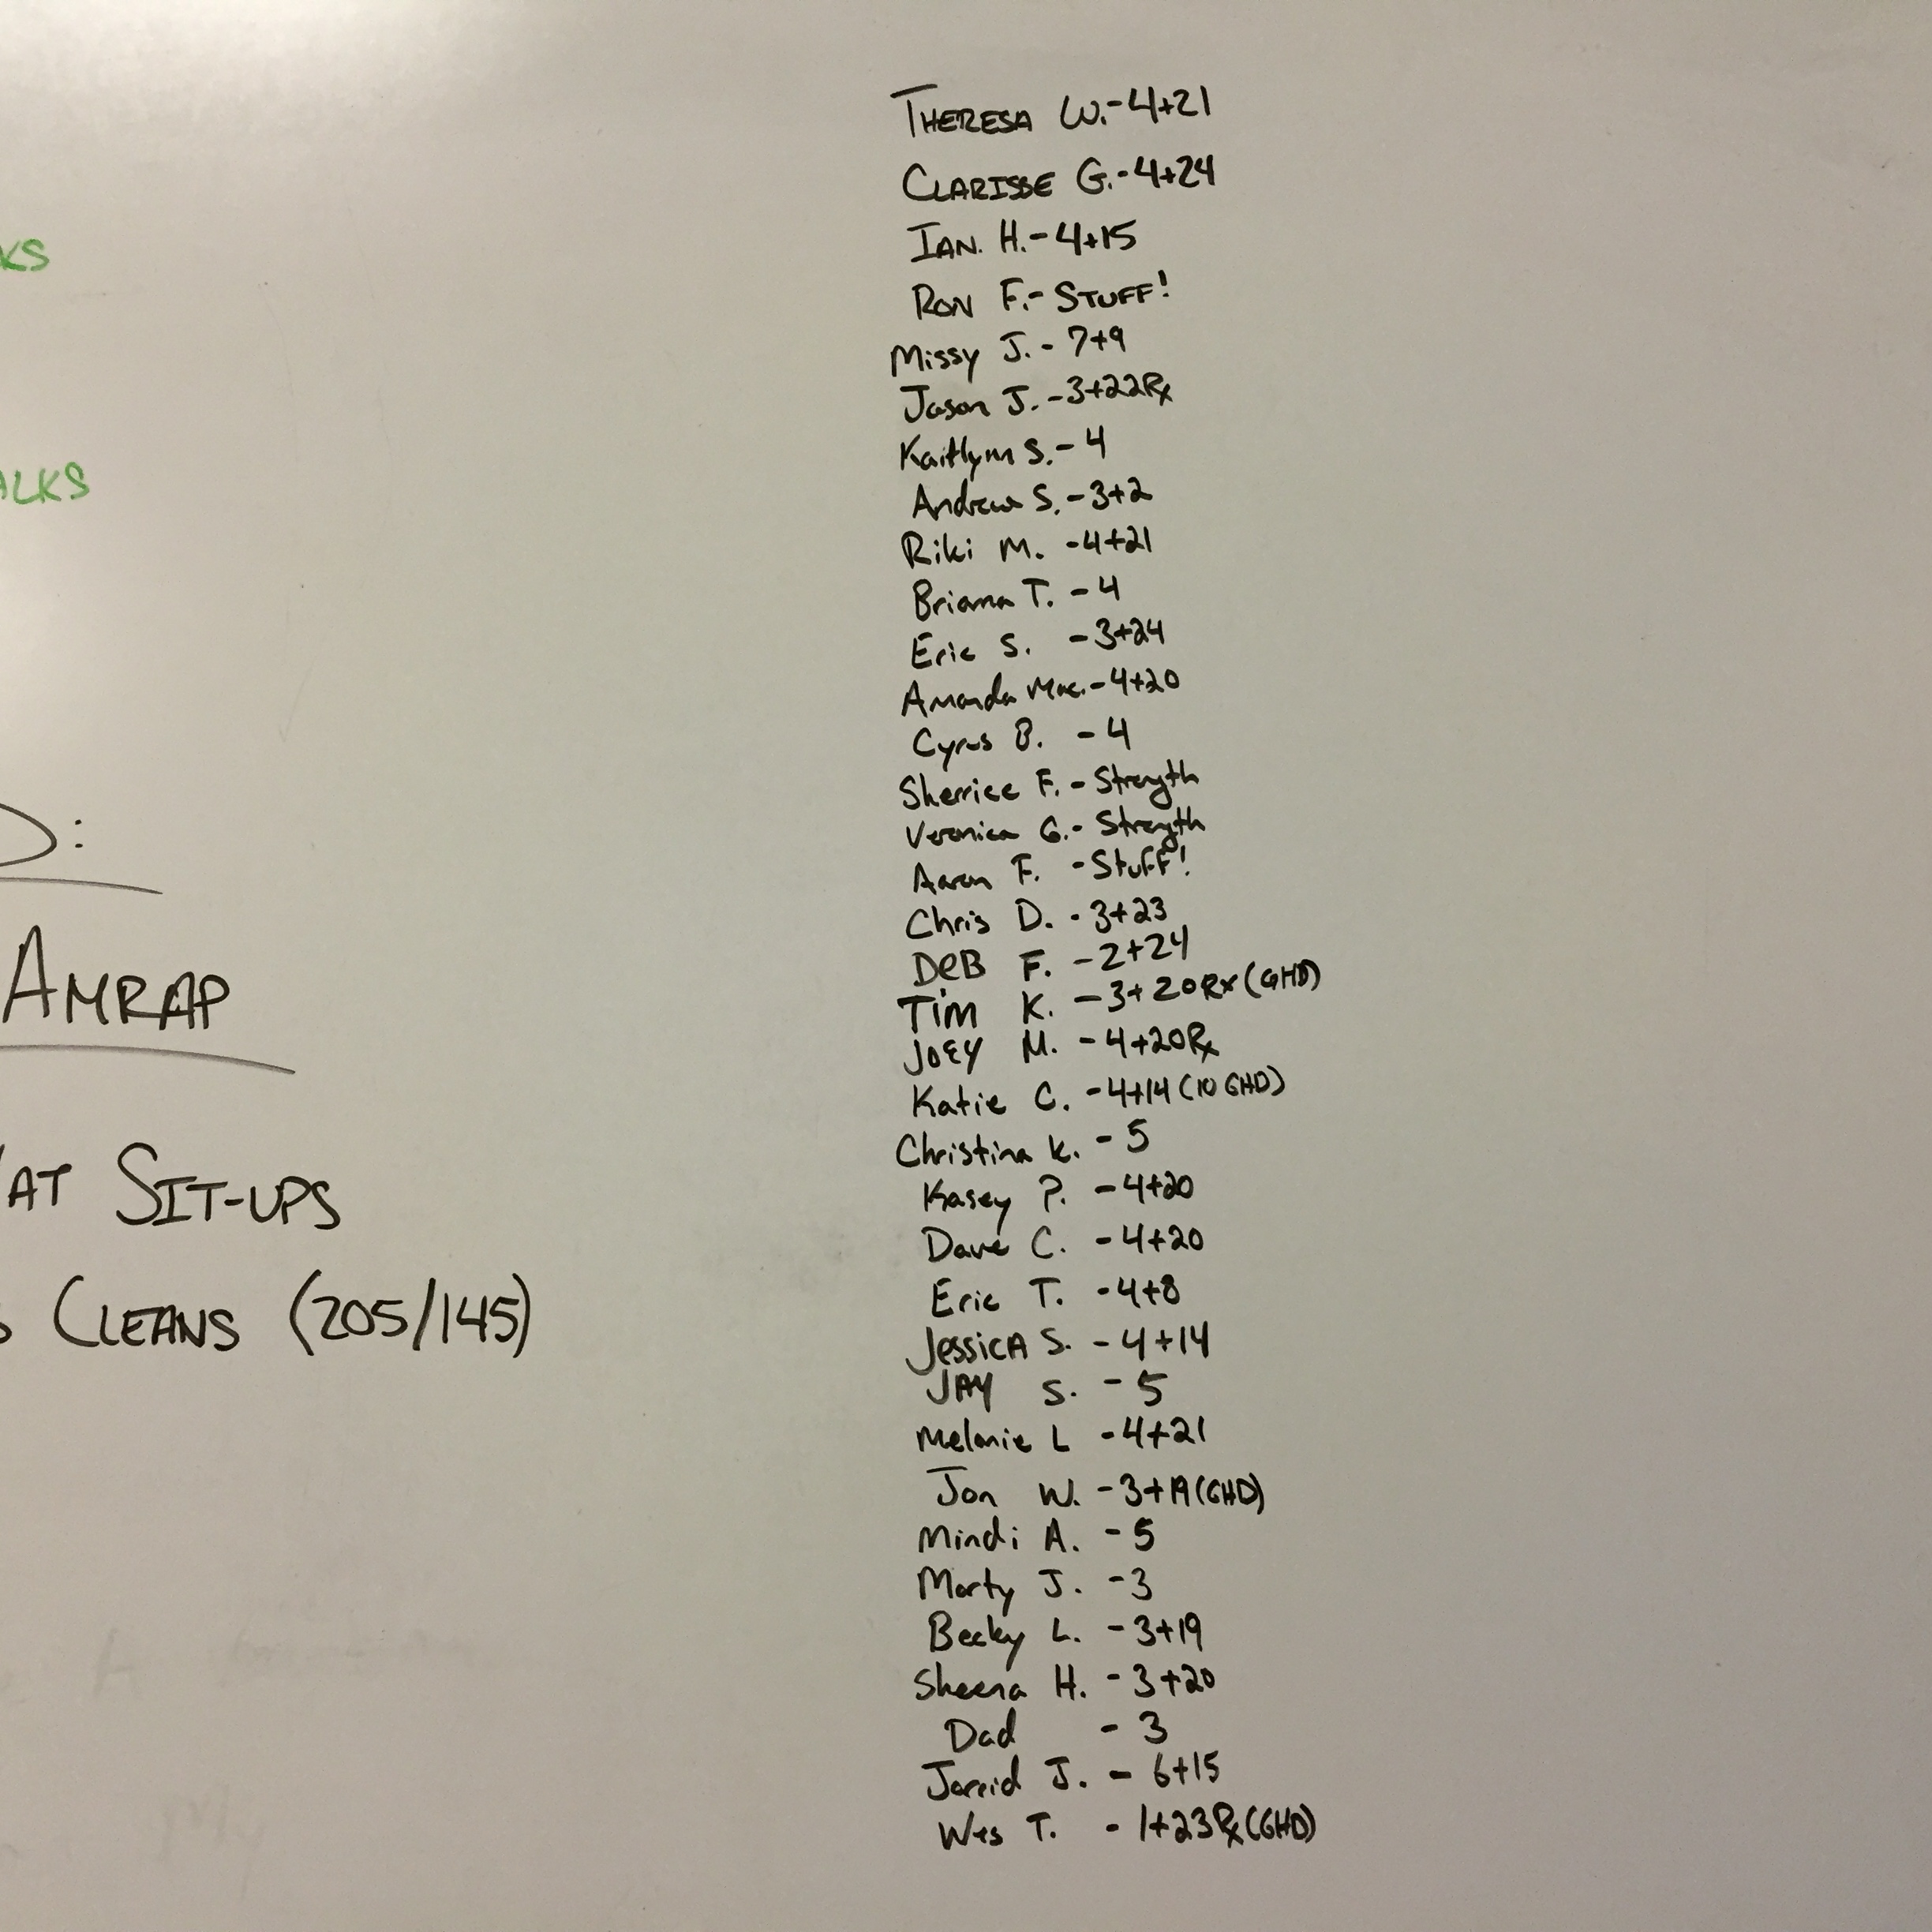 KS
ALKS
D:
AMRAP
AT SIT-UPS
CLEANS (205/145)
THERESA W. - 4+21
CLARISSE G. - 4+24
IAN. H. - 4+15
RON F. - STUFF!
Missy J. - 7+9
Jason J. - 3+22 Rx
Kaitlynn S. - 4
Andrew S. - 3+2
Riki M. - 4+21
Briana T. - 4
Eric S. - 3+24
Amanda Mac. - 4+20
Cyrus B. - 4
Sherrice F. - Strength
Veronica G. - Strength
Aaron F. - Stuff!
Chris D. - 3+23
DeB F. - 2+24
Tim K. - 3+20 Rx (GHD)
JOEY M. - 4+20 Rx
Katie C. - 4+14 (10 GHD)
Christina K. - 5
Kasey P. - 4+20
Dave C. - 4+20
Eric T. - 4+8
JessicA S. - 4+14
JAY S. - 5
Melanie L - 4+21
Jon W. - 3+19 (GHD)
Mindi A. - 5
Marty J. - 3
Becky L. - 3+19
Sheena H. - 3+20
Dad - 3
Jarrid J. - 6+15
Wes T. - 1+23 Rx (GHD)